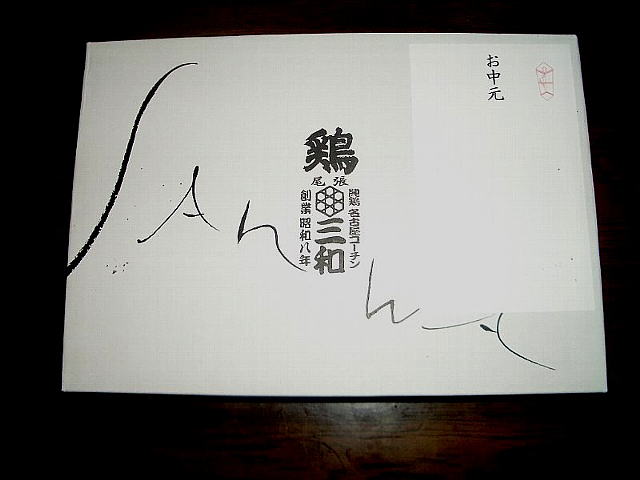 お中元
鶏
尾張
純鶏 名古屋コーチン
三和
創業 昭和八年
SANWA